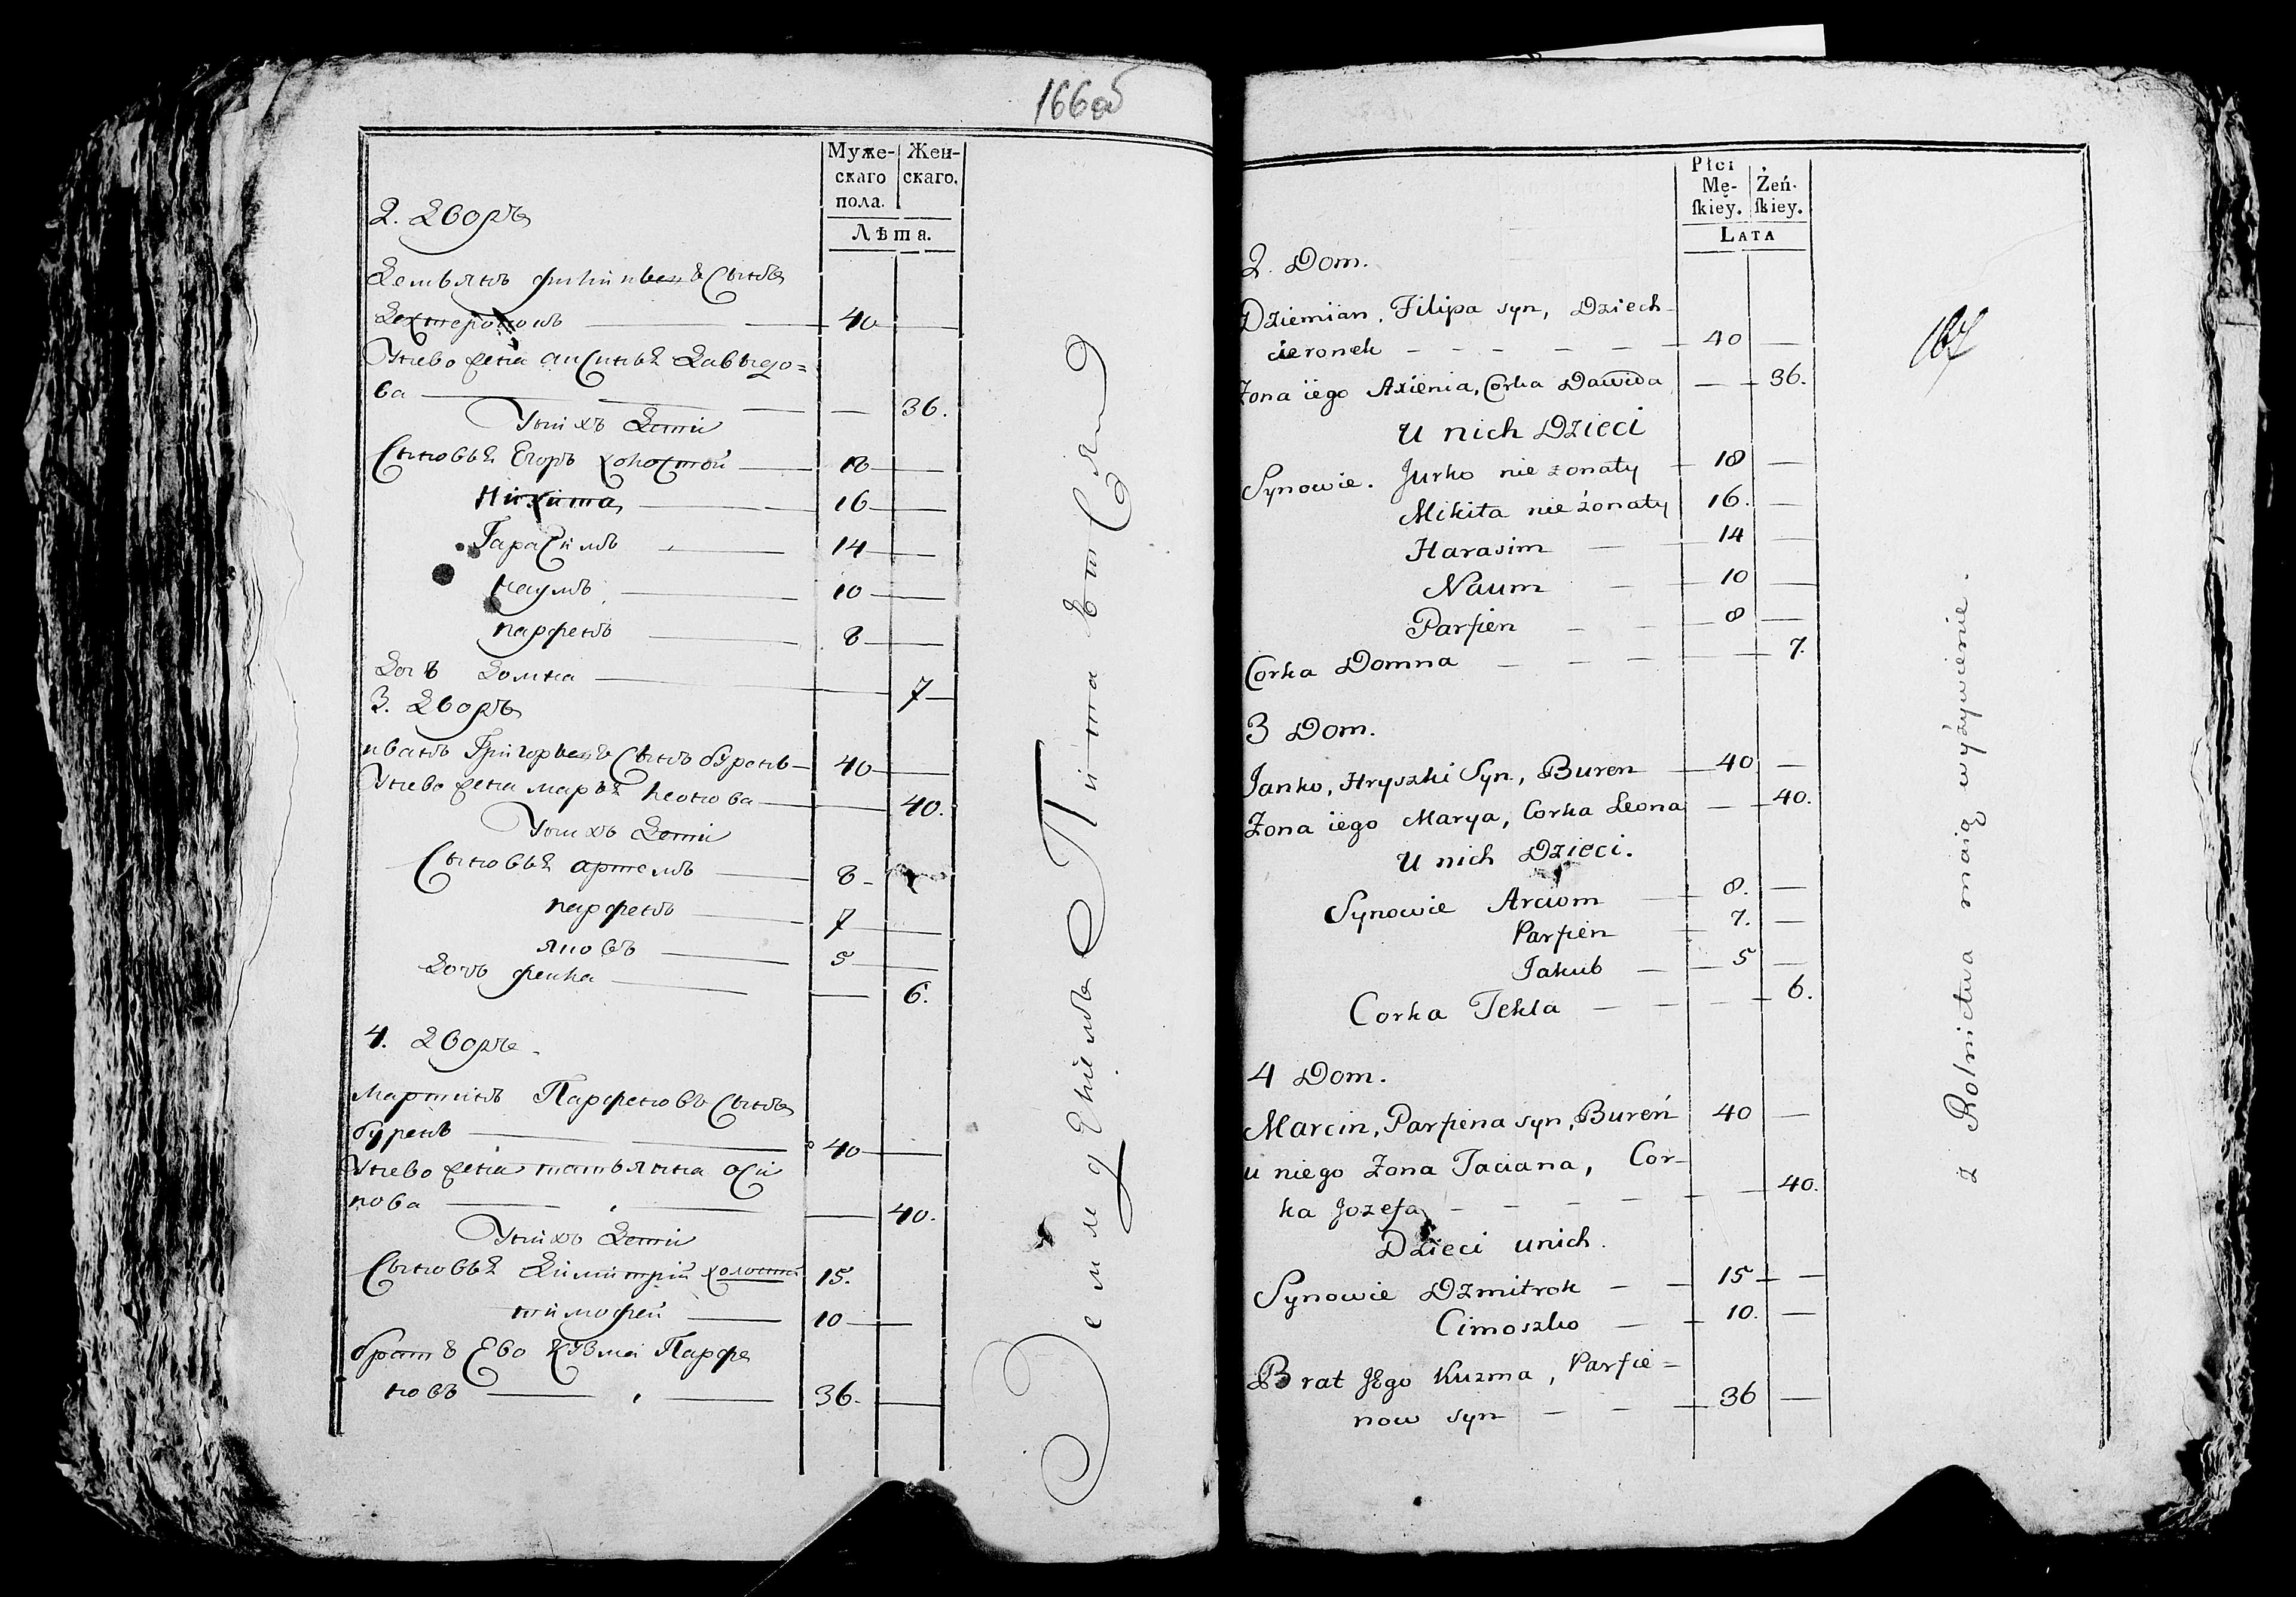 166об
Муже-
скаго
пола.
Жен-
скаго.
Лѣта.
2. Дворъ
Демьянъ Филиповъ Сынъ
Дехтеронокъ 40
Унево жена аксинья Давыдо=
ва 36.
Унихъ Дети
Сыновья Егоръ холостой 18
Никита 16
Гарасимъ 14
наумъ 10
парфенъ 8
Дочь Домна 7
3. Дворъ
иванъ Григорьевъ Сынъ буренъ 40
Унево жена марья леонова 40.
Унихъ Дети
Сыновья артемъ 8
парфенъ 7
яковъ 5
Дочь фекла 6.
4. Дворъ.
мартинъ Парфеновъ Сынъ
буренъ 40
Унево жена татьянна оси
пова 40.
Унихъ Дети
Сыновья Димитрій холостой 15.
тимофей 10
братъ Ево Кузма Парфе
новъ 36.
Земледѣліемъ Питаются
Płci
Mę-
ſkiey.
Żeń-
ſkiey.
LATA
167
2. Dom.
Dziemian, Filipa syn, Dziech-
cieronek 40
Zona iego Axienia, Corka Dawida 36.
U nich Dzieci
Synowie. Jurko nie zonaty 18
Mikita nie żonaty 16.
Harasim 14
Naum 10
Parfien 8
Corka Domna 7.
3 Dom.
Janko, Hryszki Syn, Buren 40
Zona iego Marya, Corka Leona 40.
U nich Dzieci.
Synowie Arciom 8.
Parfien 7.
Jakub 5
Corka Tekla 6.
4 Dom.
Marcin, Parfiena syn, Bureń 40
u niego Zona Taciana, Cor-
ka Jozefa 40.
Dzieci unich.
Synowie Dzmitrok 15
Cimoszko 10.
Brat Jego Kuzma, Parfie=
now syn 36
z Rolnictwa maią wyżywienie.